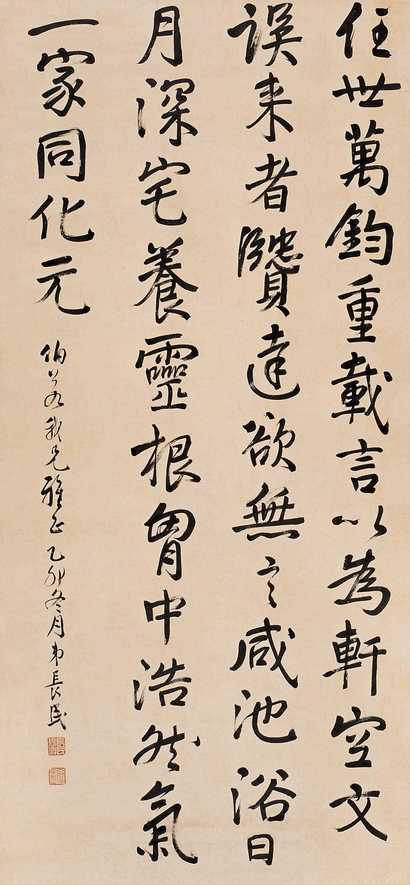 任世萬鈞重載言以為軒空文
誤來者贒達欲無言咸池浴日
月深宅養靈根胷中浩然氣
一家同化元
伯我兄雅正乙卯冬月弟長民